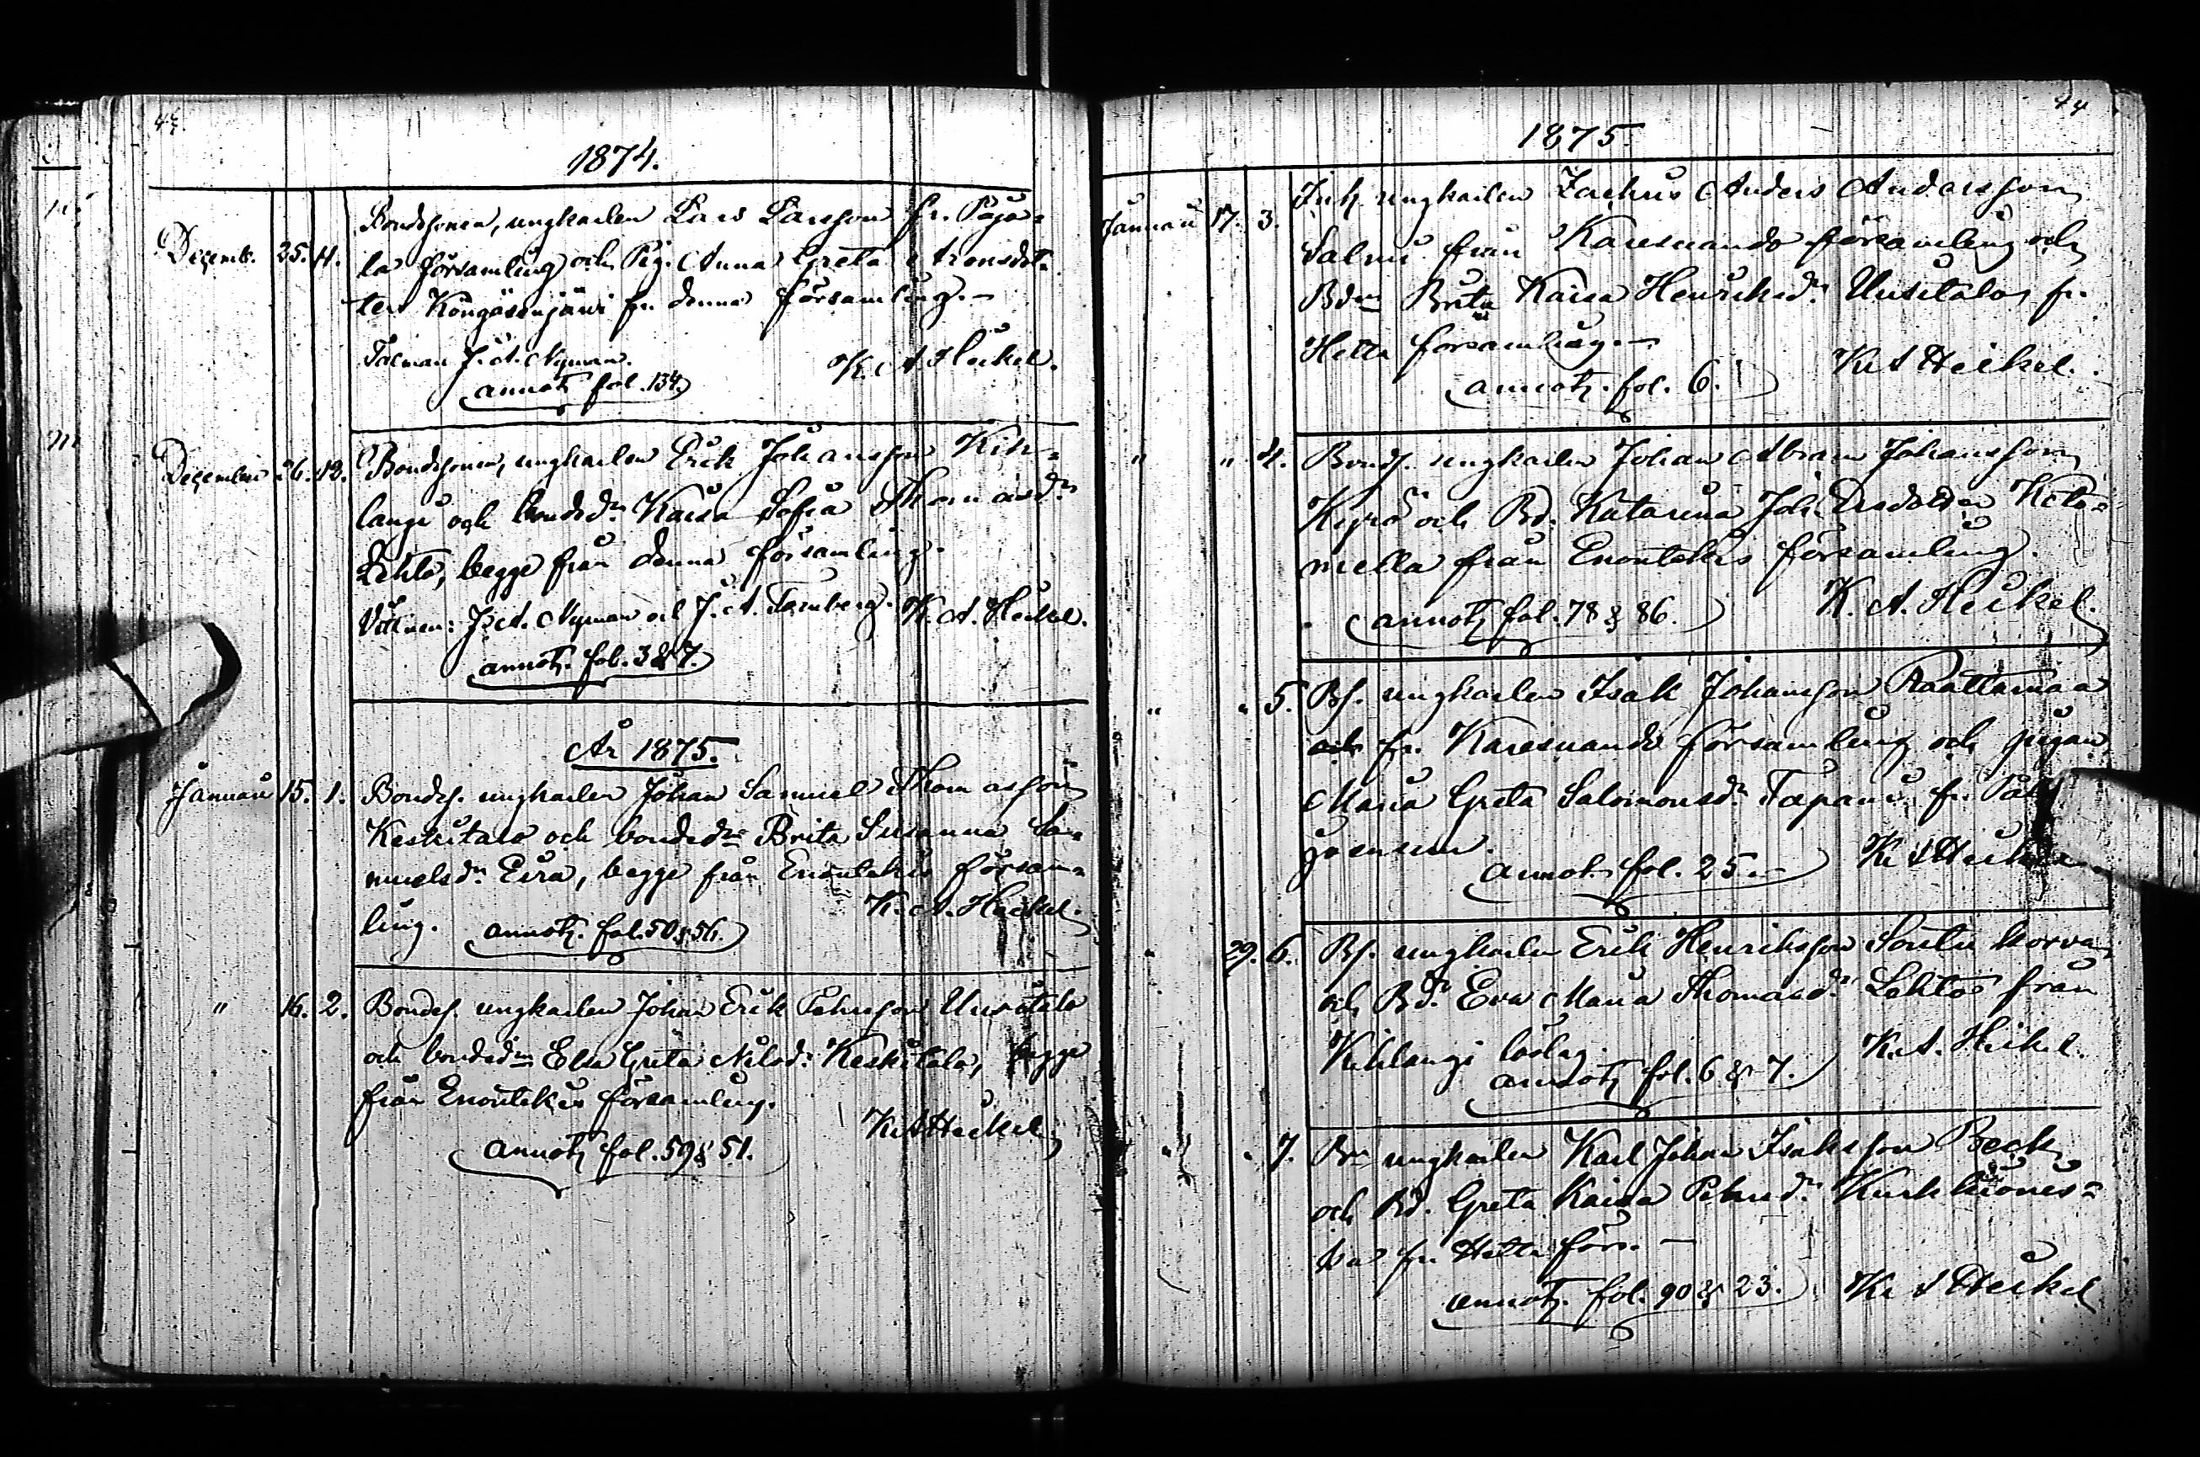 43.
1874.
Decemb. 25. 11. Bondesonen, ungkarlen Lars Larsson fr. Paja-
la församling och Pig. Anna Greta Aronsdot-
ter Köngäsenjärvi fr. denna församling.—
Tolman J. A. Nyman. K. A Heikel.
annot. fol. 134.
December 26. 13. Bondesonen, ungkarlen Erik Johansson Kih-
langi och bondedr Kaisa Sofia Thomasdr
Lehto, begge från denna församling.
Vittnen: J. A. Nyman och J. A. Tornberg. K. A. Heikel.
annot. fol. 3 & 7.
År 1875.
Januari 15. 1. Bondes. ungkarlen Johan Samuel Thomasson
Keskitalo och bondedr Brita Susanna Sa-
muelsdr Eira, begge från Enontekis försam-
ling. annot. fol. 50 & 56. K. A. Heikel.
" 16. 2. Bondes. ungkarlen Johan Erik Pehrsson Unsitalo
och bondedr Elsa Greta Nilsdr Keskitalo, begge
från Enontekis församling.
annot. fol. 59 & 51. K A Heikel
44
1875.
Januari 17. 3. Inh. ungkarlen Zachris Anders Andersson
Salmi från Karesuando församling och
Bdr Brita Kaisa Henriksdr Unsitalo fr.
Hetta församling.—
annot. fol. 6. K A Heikel.
" " 4. Bonds. ungkarlen Johan Abram Johansson
Kyrö och Bd. Katarina Joh. Keto-
mella från Enontekis församling.
annot. fol. 78 & 86. K. A. Heikel.
" " 5. Bs. ungkarlen Isak Johansson Raattamaa
fr. Karesuando församling och pigan
Maria Greta Salomonsdr Tapani fr.
annot. fol. 25.— K A Heikel
" 29. 6. Bs. ungkarlen Erik Henriksson korva
och Bdr Eva Maria Thomasdr Lehto från
Kihlangi
annot. fol. 6 & 7. K. A. Heikel.
" " 7. Bn ungkarlen Karl Johan Isaksson Beck
och Bd. Greta Kaisa Pehrsdr
fr. Hetta förs.—
annot. fol. 90 & 23. K A Heikel